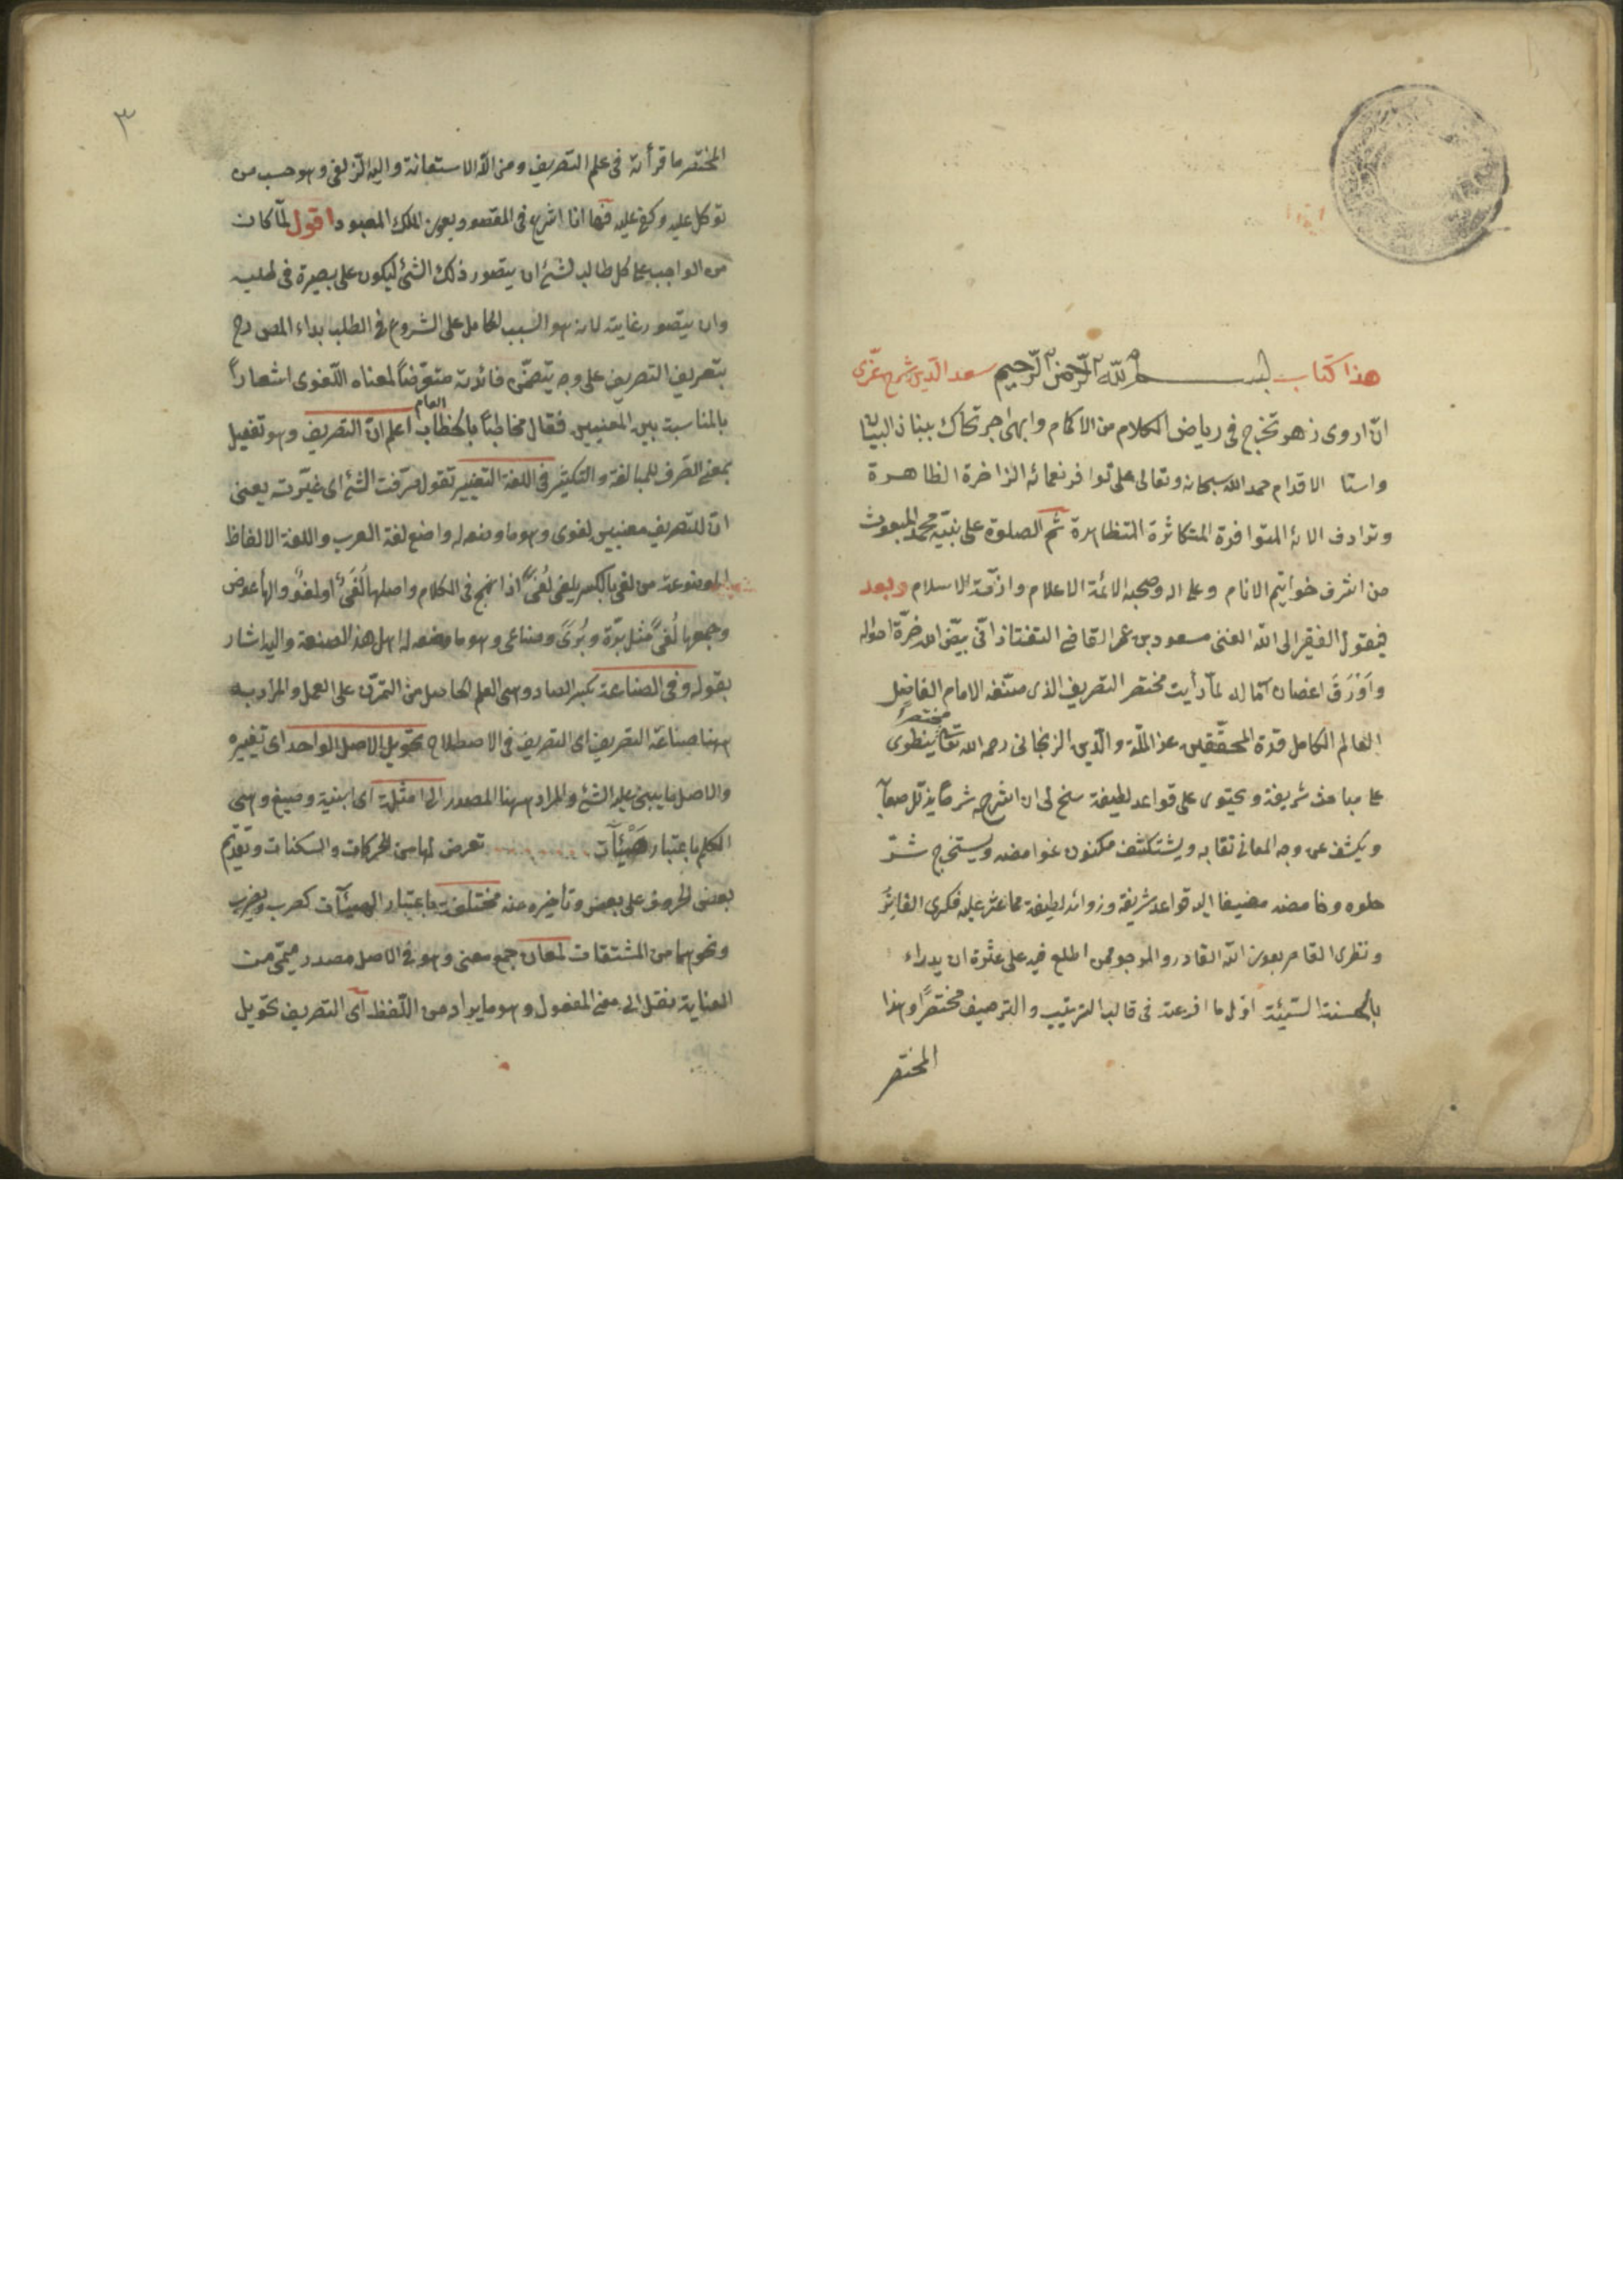 هذا كتاب بسم الله الرحمن الرحيم سعد الدين شرح عزى
انّ اروى زهر تخرج فى رياض الكلام من الاكمام وابهى حبر تحاك ببنان البيان
واسنا الاقدام حمد الله سبحانه وتعالى على توافر نعمائه الزاخرة الظاهرة
وترادف الائه المتوافرة المتكاثرة المتظاهرة ثم الصلوة على نبيّه محمد المبعوث
من اشرف خوانيم الانام وعلى اله وصحبه الائمة الاعلام وازمّة الاسلام وبعد
فيقول الفقير الى الله الغنى مسعود بن عمر القاضى التفتازانى بيّض الله غرّة احواله
واَوْرَقَ اغصان آماله لمّا رأيت مختصر التصريف الذى صنّفه الامام الفاضل
العالم الكامل قدوة المحقّقين عز الملّة والدّين الزنجانى رحمه الله تعالى مختصرًا ينطوى
على مباحث شريفة ويحتوى على قواعد لطيفة سنح لى ان اشرحه شرحًا يذلّل صعابه
ويكشف عن وجه المعانى نقابه ويستكشف مكنون غوامضه ويستخرج سرّ
حلوه وحامضه مضيفا اليه قواعد شريفة وزوائد لطيفة مما عثر عليه فكرى الفاتر
ونظرى القاصر بعون الله القادر والمرجو ممن اطلع فيه على عثرة ان يدراء
بالحسنة السّيئة اوّل ما افرغته فى قالب الترتيب والترصيف مختصرًا وهذا
المختصر
٣
المختصر ما قرأته فى علم التصريف ومن الله الاستعانة واليه الزلفى وهو حسب من
توكل عليه وكفى عليه فها انا اشرع فى المقصود بعون الملك المعبود اقول لمّا كان
من الواجب على كل طالب لشئ ان يتصور ذلك الشئ ليكون على بصيرة فى طلبه
وان يتصور غايته لانه هو السبب الحامل على الشروع فى الطلب بداء المص رح
بتعريف التصريف على وجه يتضمّن فائدته متعرّضاً لمعناه اللّغوى اشعاراً
بالمناسبة بين المعنيين فقال مخاطبًا بالخطاب العام اعلم انّ التصريف وهو تفعيل
بمعنى الصّرف للمبالغة والتكثير فى اللغة التغيير تقول صرّفت الشئ اى غيّرته يعنى
انّ للتصريف معنيين لغوى وهو ما وضعه له واضع لغة العرب واللغة الالفاظ
الموضوعة من لغى بالكسر يلغى لُغىً اذا لهج فى الكلام واصلها لُغَىٌ او لغوٌ والهأ عوض
وجمعها لُغىً مثل بُرّة وبُرىً وصناعى وهو ما وضعه له اهل هذه الصنعة واليه اشار
بقوله وفى الصناعة بكسر الصاد وهى العلم الحاصل من التمرّن على العمل والمراد به
ههنا صناعة التصريف اى التصريف فى الاصطلاح تحويل الاصل الواحد اى تغييره
والاصل ما يبنى عليه الشئ والمراد ههنا المصدر الى امثلة اى ابنية وصيغ وهى
الكلم باعتبار هَيْئاَت تعرض لها من الحركات والسكنات وتقديم
بعض الحروف على بعض وتأخيره عنه مختلفة باعتبار الهيئآت كضرب ويضرب
ونحوهما من المشتقات لمعان جمع معنى وهو فى الاصل مصدر ميمّى من
العناية نقل الى معنى المفعول وهو ما يراد من اللّفظ اى التصريف تحويل